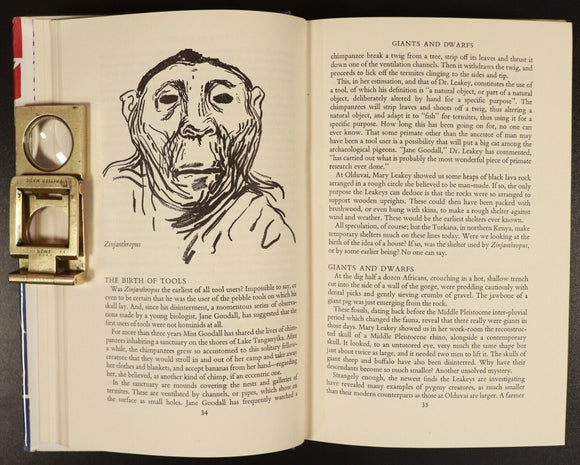 Zinjanthropus
THE BIRTH OF TOOLS
Was Zinjanthropus the earliest of all tool users? Impossible to say, or
even to be certain that he was the user of the pebble tools on which his
skull lay. And, since his disinterment, a momentous series of obser-
vations made by a young biologist, Jane Goodall, has suggested that the
first users of tools were not hominids at all.
For more than three years Miss Goodall has shared the lives of chim-
panzees inhabiting a sanctuary on the shores of Lake Tanganyika. After
a while, the chimpanzees grew so accustomed to this solitary fellow-
creature that they would stroll in and out of her camp and take away
her clothes and blankets, and accept bananas from her hand—regarding
her, she believed, as another kind of chimp, if an eccentric one.
In the sanctuary are mounds covering the nests and galleries of
termites. These are ventilated by channels, or pipes, which show on
the surface as small holes. Jane Goodall has frequently watched a
34
GIANTS AND DWARFS
chimpanzee break a twig from a tree, strip off its leaves and thrust it
down one of the ventilation channels. Then it withdraws the twig, and
proceeds to lick off the termites clinging to the sides and tip.
This, in her estimation, and that of Dr. Leakey, constitutes the use
of a tool, of which his definition is "a natural object, or part of a natural
object, deliberately altered by hand for a specific purpose". The
chimpanzees will strip leaves and shoots off a twig, thus altering a
natural object, and adapt it to "fish" for termites, thus using it for a
specific purpose. How long this has been going on for, no one can
ever know. That some primate other than the ancestor of man may
have been a tool user is a possibility that will put a big cat among the
archaeological pigeons. "Jane Goodall," Dr. Leakey has commented,
"has carried out what is probably the most wonderful piece of primate
research ever done."
At Olduvai, Mary Leakey showed us some heaps of black lava rock
arranged in a rough circle she believed to be man-made. If so, the only
purpose the Leakeys can deduce is that they were arranged
to support wooden uprights. These could then have been packed with
brushwood, or even hung with skins, to make a rough shelter against
wind and weather. These would be the earliest shelters ever known.
All speculation, of course; but the Turkana, in northern Kenya, make
temporary shelters much on these lines today. Were we looking at the
birth of the idea of a house? If so, was the shelter used by Zinjanthropus,
or by some earlier being? No one can say.
GIANTS AND DWARFS
At the dig half a dozen Africans, crouching in a hot, shallow trench
cut into the side of a wall of the gorge, were prodding cautiously with
dental picks and gently sieving crumbs of gravel. The jawbone of a
giant pig was just emerging from the rock.
These fossils, dating back before the Middle Pleistocene inter-pluvial
period which changed the fauna, reveal that there really were giants in
those days. Mary Leakey showed us in her work-room the reconstruc-
ted skull of a Middle Pleistocene rhino, alongside a contemporary
skull. It looked, to an untutored eye, very much the same shape but
just about twice as large, and it needed two men to lift it. The skulls of
giant sheep and buffalo have also been disinterred. Why have their
descendants become so much smaller? Another unsolved mystery.
Strangely enough, the newest finds the Leakeys are investigating
have revealed many examples of pygmy creatures, as much smaller
than their modern counterparts as those at Olduvai are larger. A farmer
35